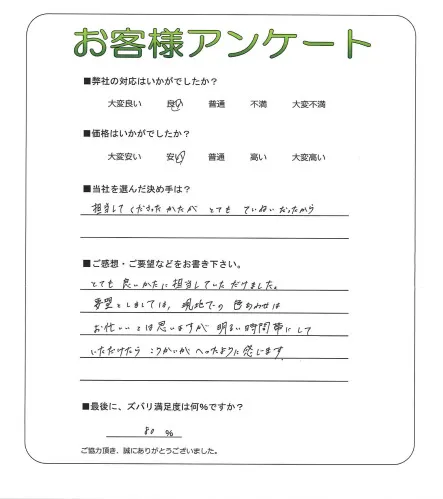 お客様アンケート
■弊社の対応はいかがでしたか?
大変良い 良い 普通 不満 大変不満
■価格はいかがでしたか?
大変安い 安い 普通 高い 大変高い
■当社を選んだ決め手は?
担当してくださったかたが とても ていねいだったから
■ご感想・ご要望などをお書き下さい。
とても良いかたに担当していただけました。
要望としましては、現地での色あわせは
お忙しいとは思いますが明るい時間帯にして
いただけたら こうかいが へったように感じます
■最後に、ズバリ満足度は何%ですか?
80 %
ご協力頂き、誠にありがとうございました。